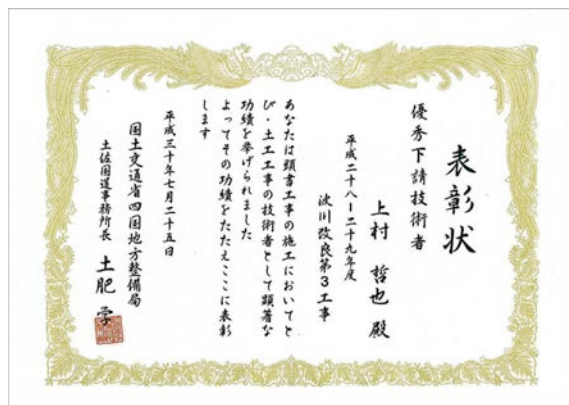 表彰状
優秀下請技術者
上村 哲也 殿
平成二十八ー二十九年度
波川改良第3工事
あなたは頭書工事の施工においてと
び・土工工事の技術者として顕著な
功績を挙げられました
よってその功績をたたえここに表彰
します
平成三十年七月二十五日
国土交通省四国地方整備局
土佐国道事務所長 土肥 学